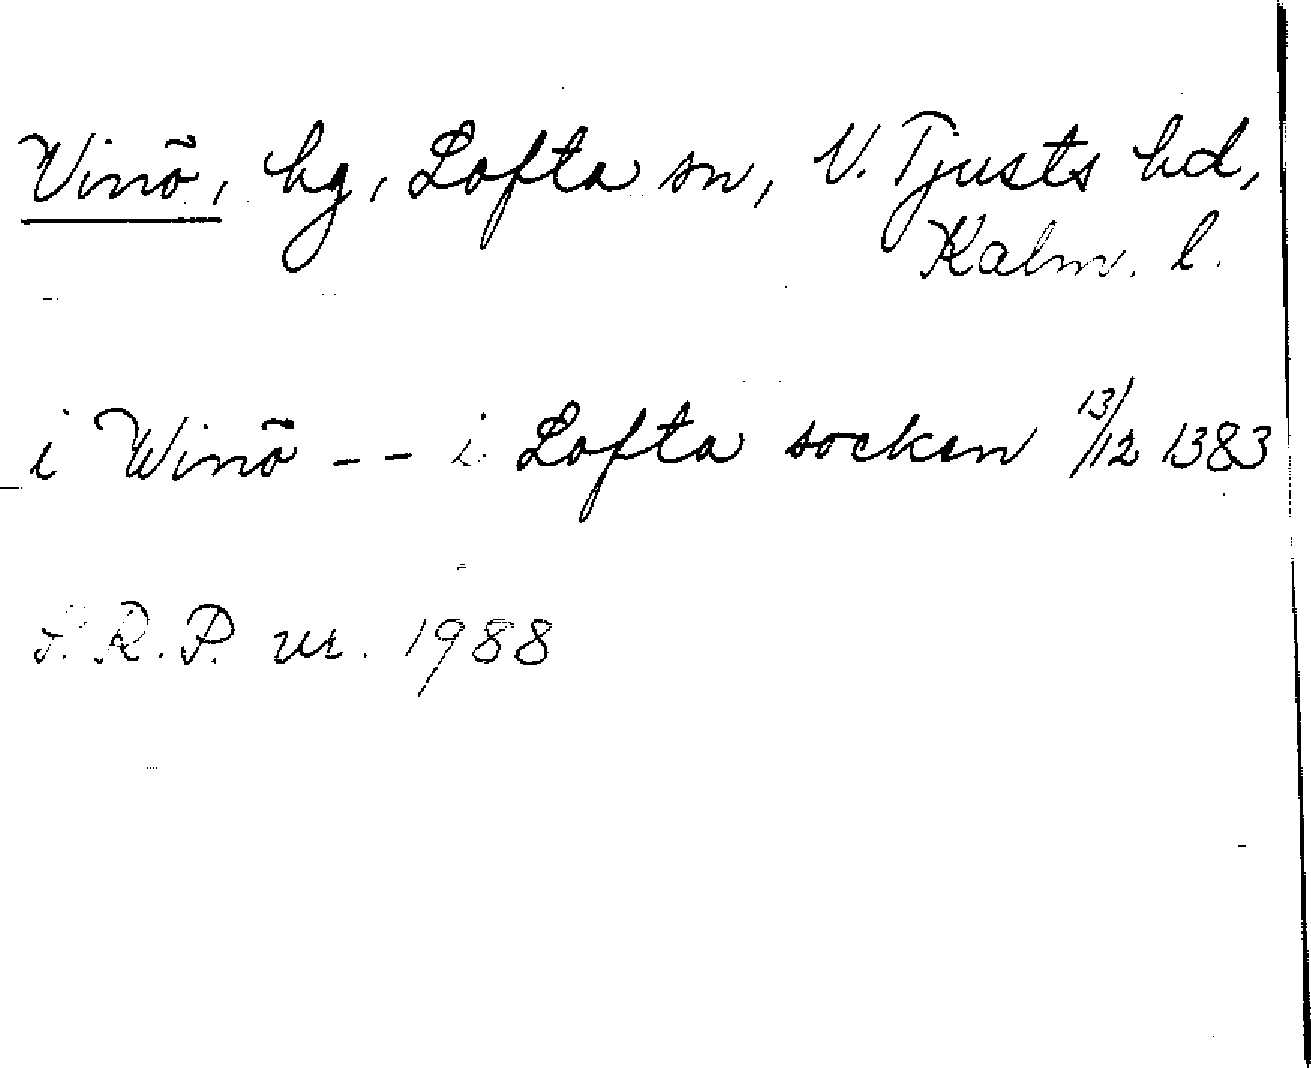 Vinö, hg, Lofta sn, V. Tjusts hd,
Kalm. l.
i Winö -- i Lofta socken 13/12 1383
S.R.P. nr. 1988